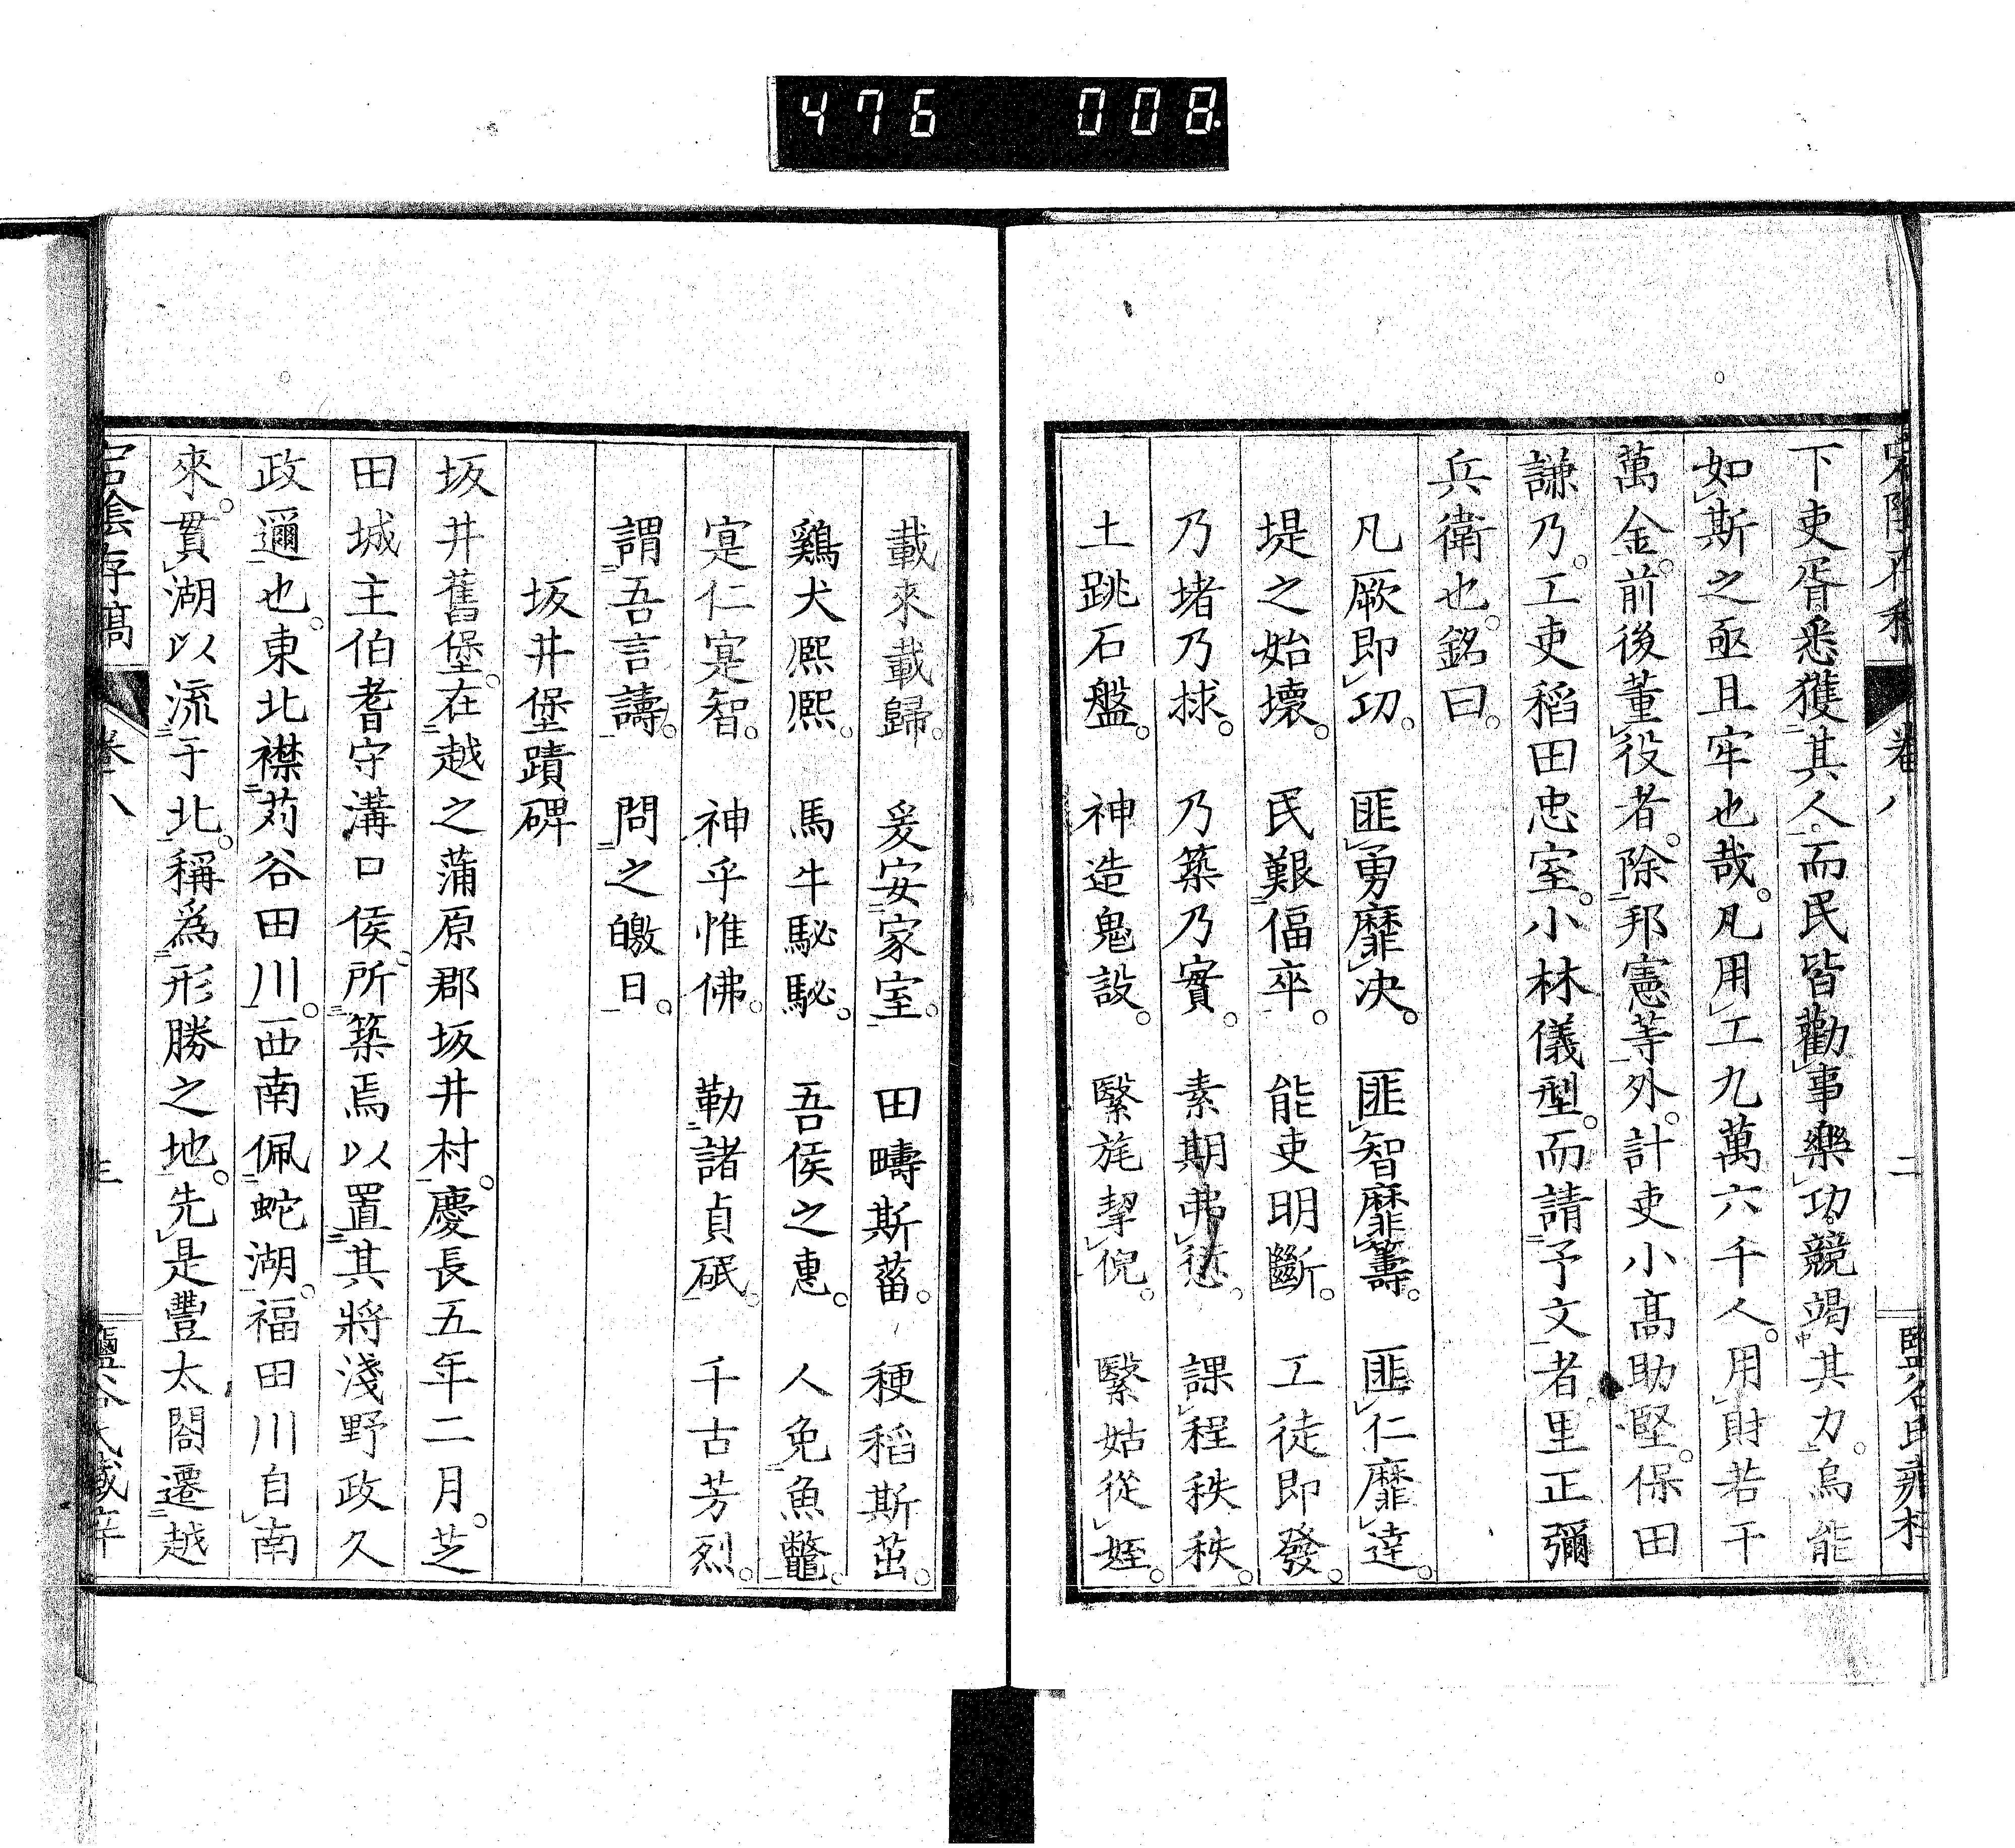 476 008
卷八
二
下吏胥悉獲其人而民皆勸事樂功競竭其力。烏能
如斯之亟且牢也哉。凡用工九萬六千人。用財若干
萬金。前後董役者。除邦憲等外。計吏小高助堅。保田
謙乃。工吏稻田忠室。小林儀型。而請予文者里正彌
兵衛也。銘曰。
凡厥即功。 匪勇靡决。 匪智靡籌。 匪仁靡達。
堤之始壞。 民艱偪卒。 能吏明斷。 工徒即發。
乃堵乃捄。 乃築乃實。 素期弗愆。 課程秩秩。
土跳石盤。 神造鬼設。 緊旄挈倪。 緊姑從姪。
載來載歸。 爰安家室。 田疇斯菑。 稉稻斯茁。
鷄犬熈熈。 馬牛駜駜。 吾侯之惠。 人免魚鼈。
寔仁寔智。 神乎惟佛。 勒諸貞砥。 千古芳烈。
謂吾言譸。 問之皦日。
坂井堡蹟碑
坂井舊堡。在越之蒲原郡坂井村。慶長五年二月。芝
田城主伯耆守溝口侯。所築焉以置其將淺野政久
政邇也。東北襟苅谷田川。西南佩蛇湖。福田川自南
來。貫湖以流于北。稱爲形勝之地。先是豐太閤遷越
宕陰存稿
卷八
三